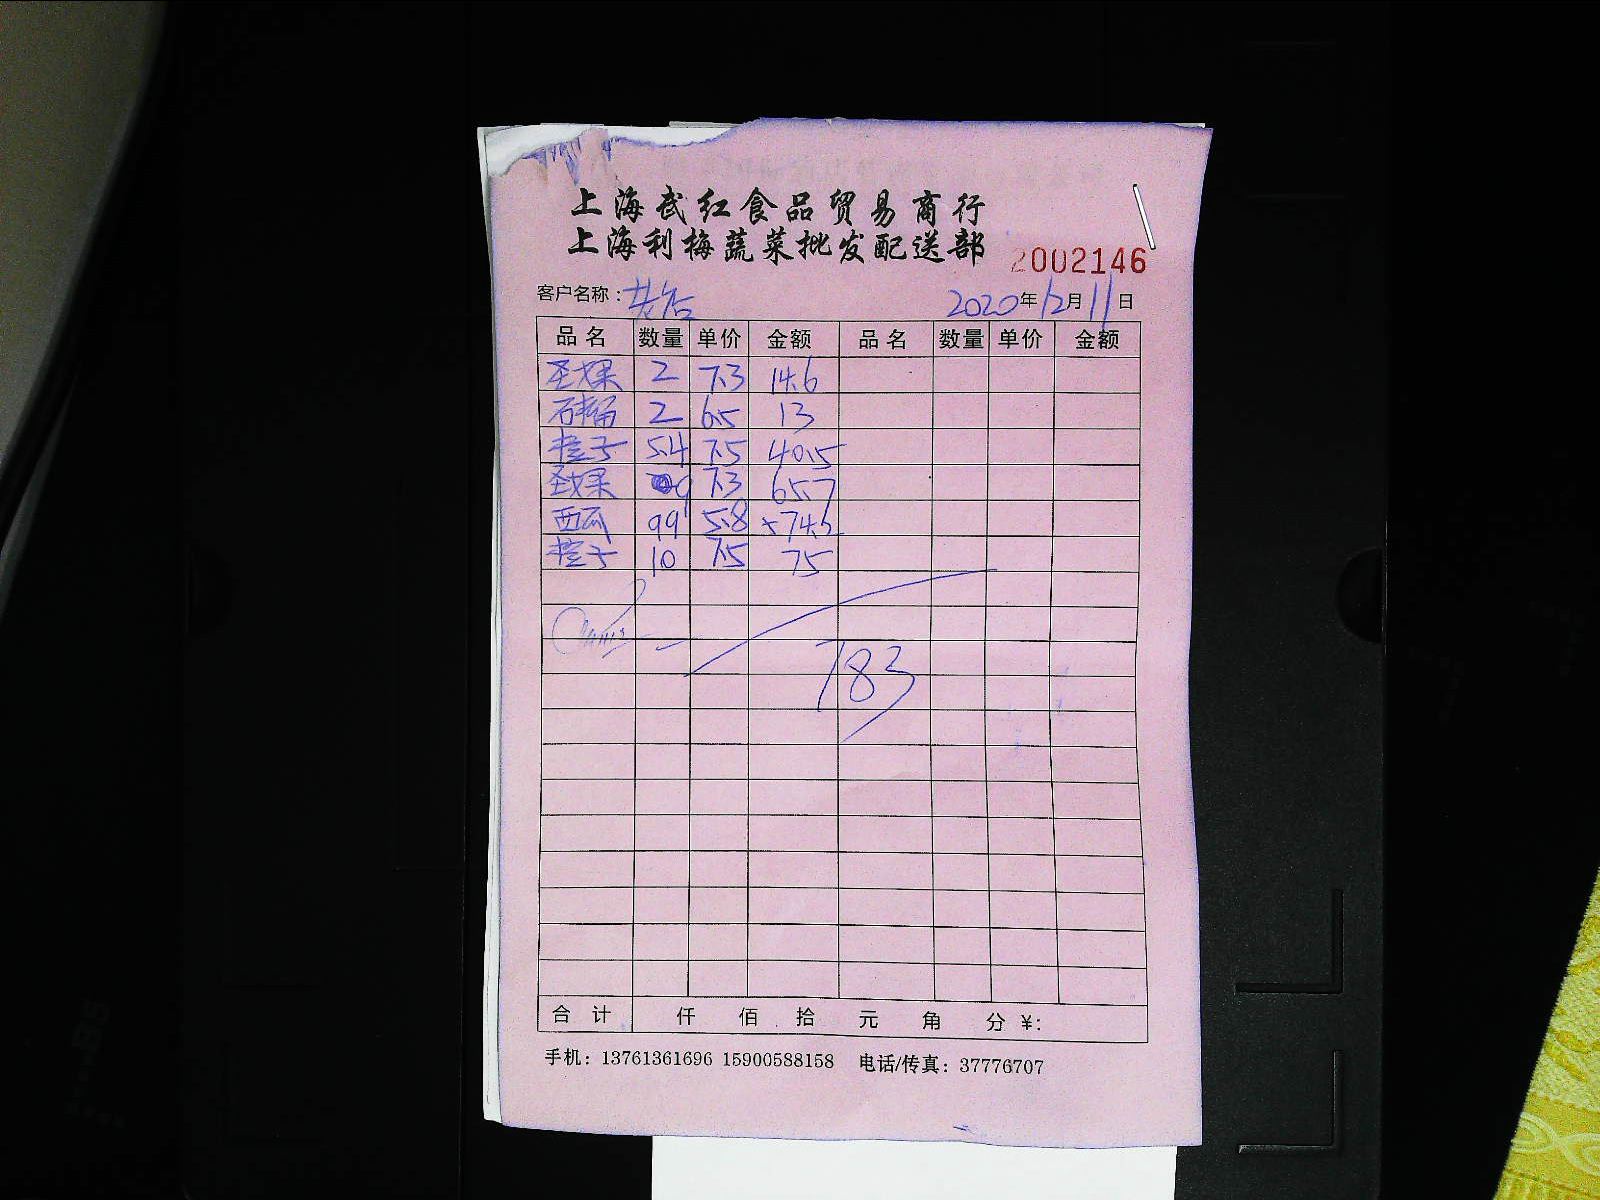 上海武红食品贸易商行
上海利梅蔬菜批发配送部
2002146
客户名称： 2020年12月11日
品名 数量 单价 金额 品名 数量 单价 金额
圣女果 2 7.3 14.6
石榴 2 6.5 13
橙子 5.4 7.5 40.5
圣女果 9 7.3 65.7
西瓜 99 5.8 574.2
橙子 10 7.5 75
783
合计 仟 佰 拾 元 角 分 ¥:
手机：13761361696 15900588158 电话/传真：37776707